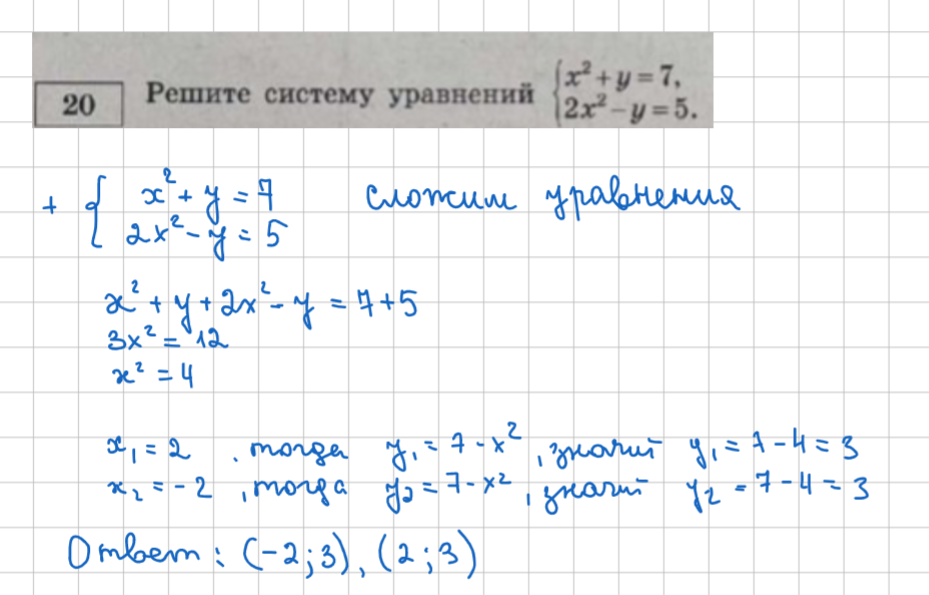 20 Решите систему уравнений { x² + y = 7,
2x² − y = 5.
+ { x² + y = 7 сложим уравнения
2x² − y = 5
x² + y + 2x² − y = 7 + 5
3x² = 12
x² = 4
x₁ = 2 , тогда y₁ = 7 − x² , значит y₁ = 7 − 4 = 3
x₂ = −2 , тогда y₂ = 7 − x² , значит y₂ = 7 − 4 = 3
Ответ : (−2; 3), (2; 3)